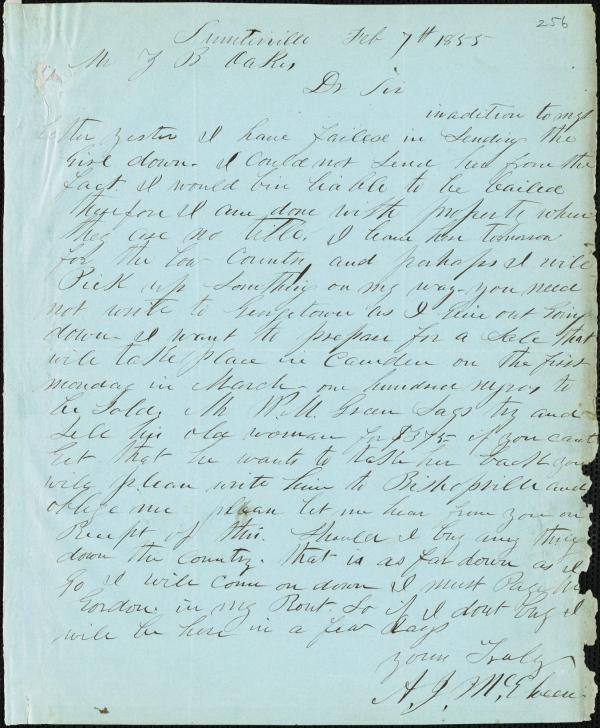 256
Sumterville Feb 7th 1855
Mr Z B Oakes
Dr Sir
inadition to my
letter yester I have failese in sending the
Girl down. I Could not send her from the
fact I would bin liable to be bailed
therefore I am done with property where
they ese no title. I leave here tomorrow
for the low Country and perhaps I will
Pick up something on my way you need
not write to Georgetown as I give out going
down. I want to prepare for a Sale that
will take place in Camden on the first
monday in March. one hundred negros to
be Sold. Mr W.M. Green Says try and
Sell his old woman for $375 if you cant
Get that he wants to take her back you
will please write him to Bishopville and
oblige me please let me hear from you on
Receipt of this. Should I buy any thing
down the Country. that is as far down as I
go I will come on down I must Page
Gordon in my Rout So if I dont buy I
will be here in a few days
yours Truly
A. J. McElveen